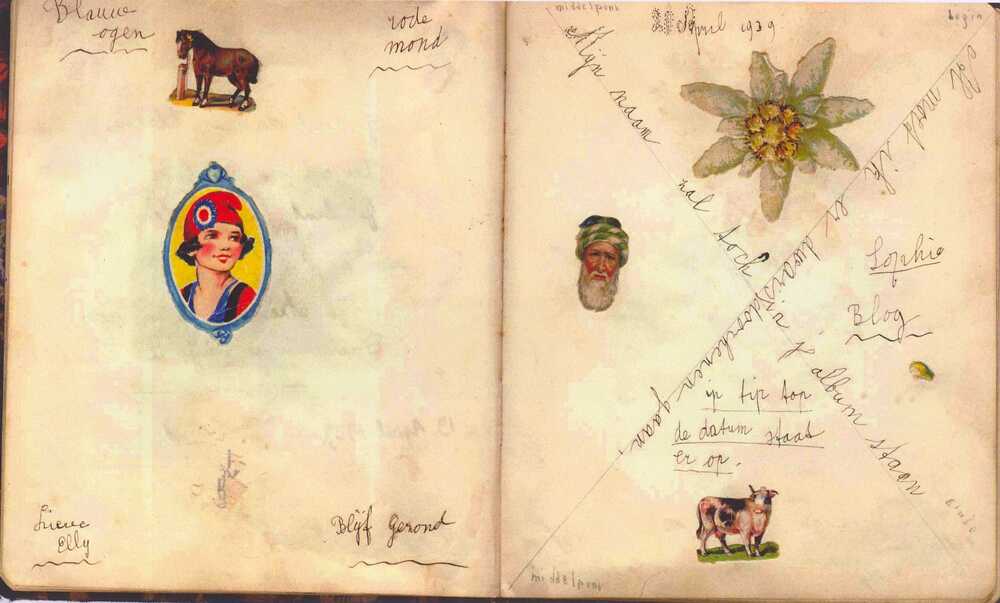 Blauwe
ogen
rode
mond
Lieve
Elly
Blijf Gezond
middelpunt
April 1939
begin
Al moet ik er dwarsdoorhenen gaan,
Mijn naam zal toch in 't album staan
Sophie
Blog
ip tip top
de datum staat
er op.
einde
middelpunt